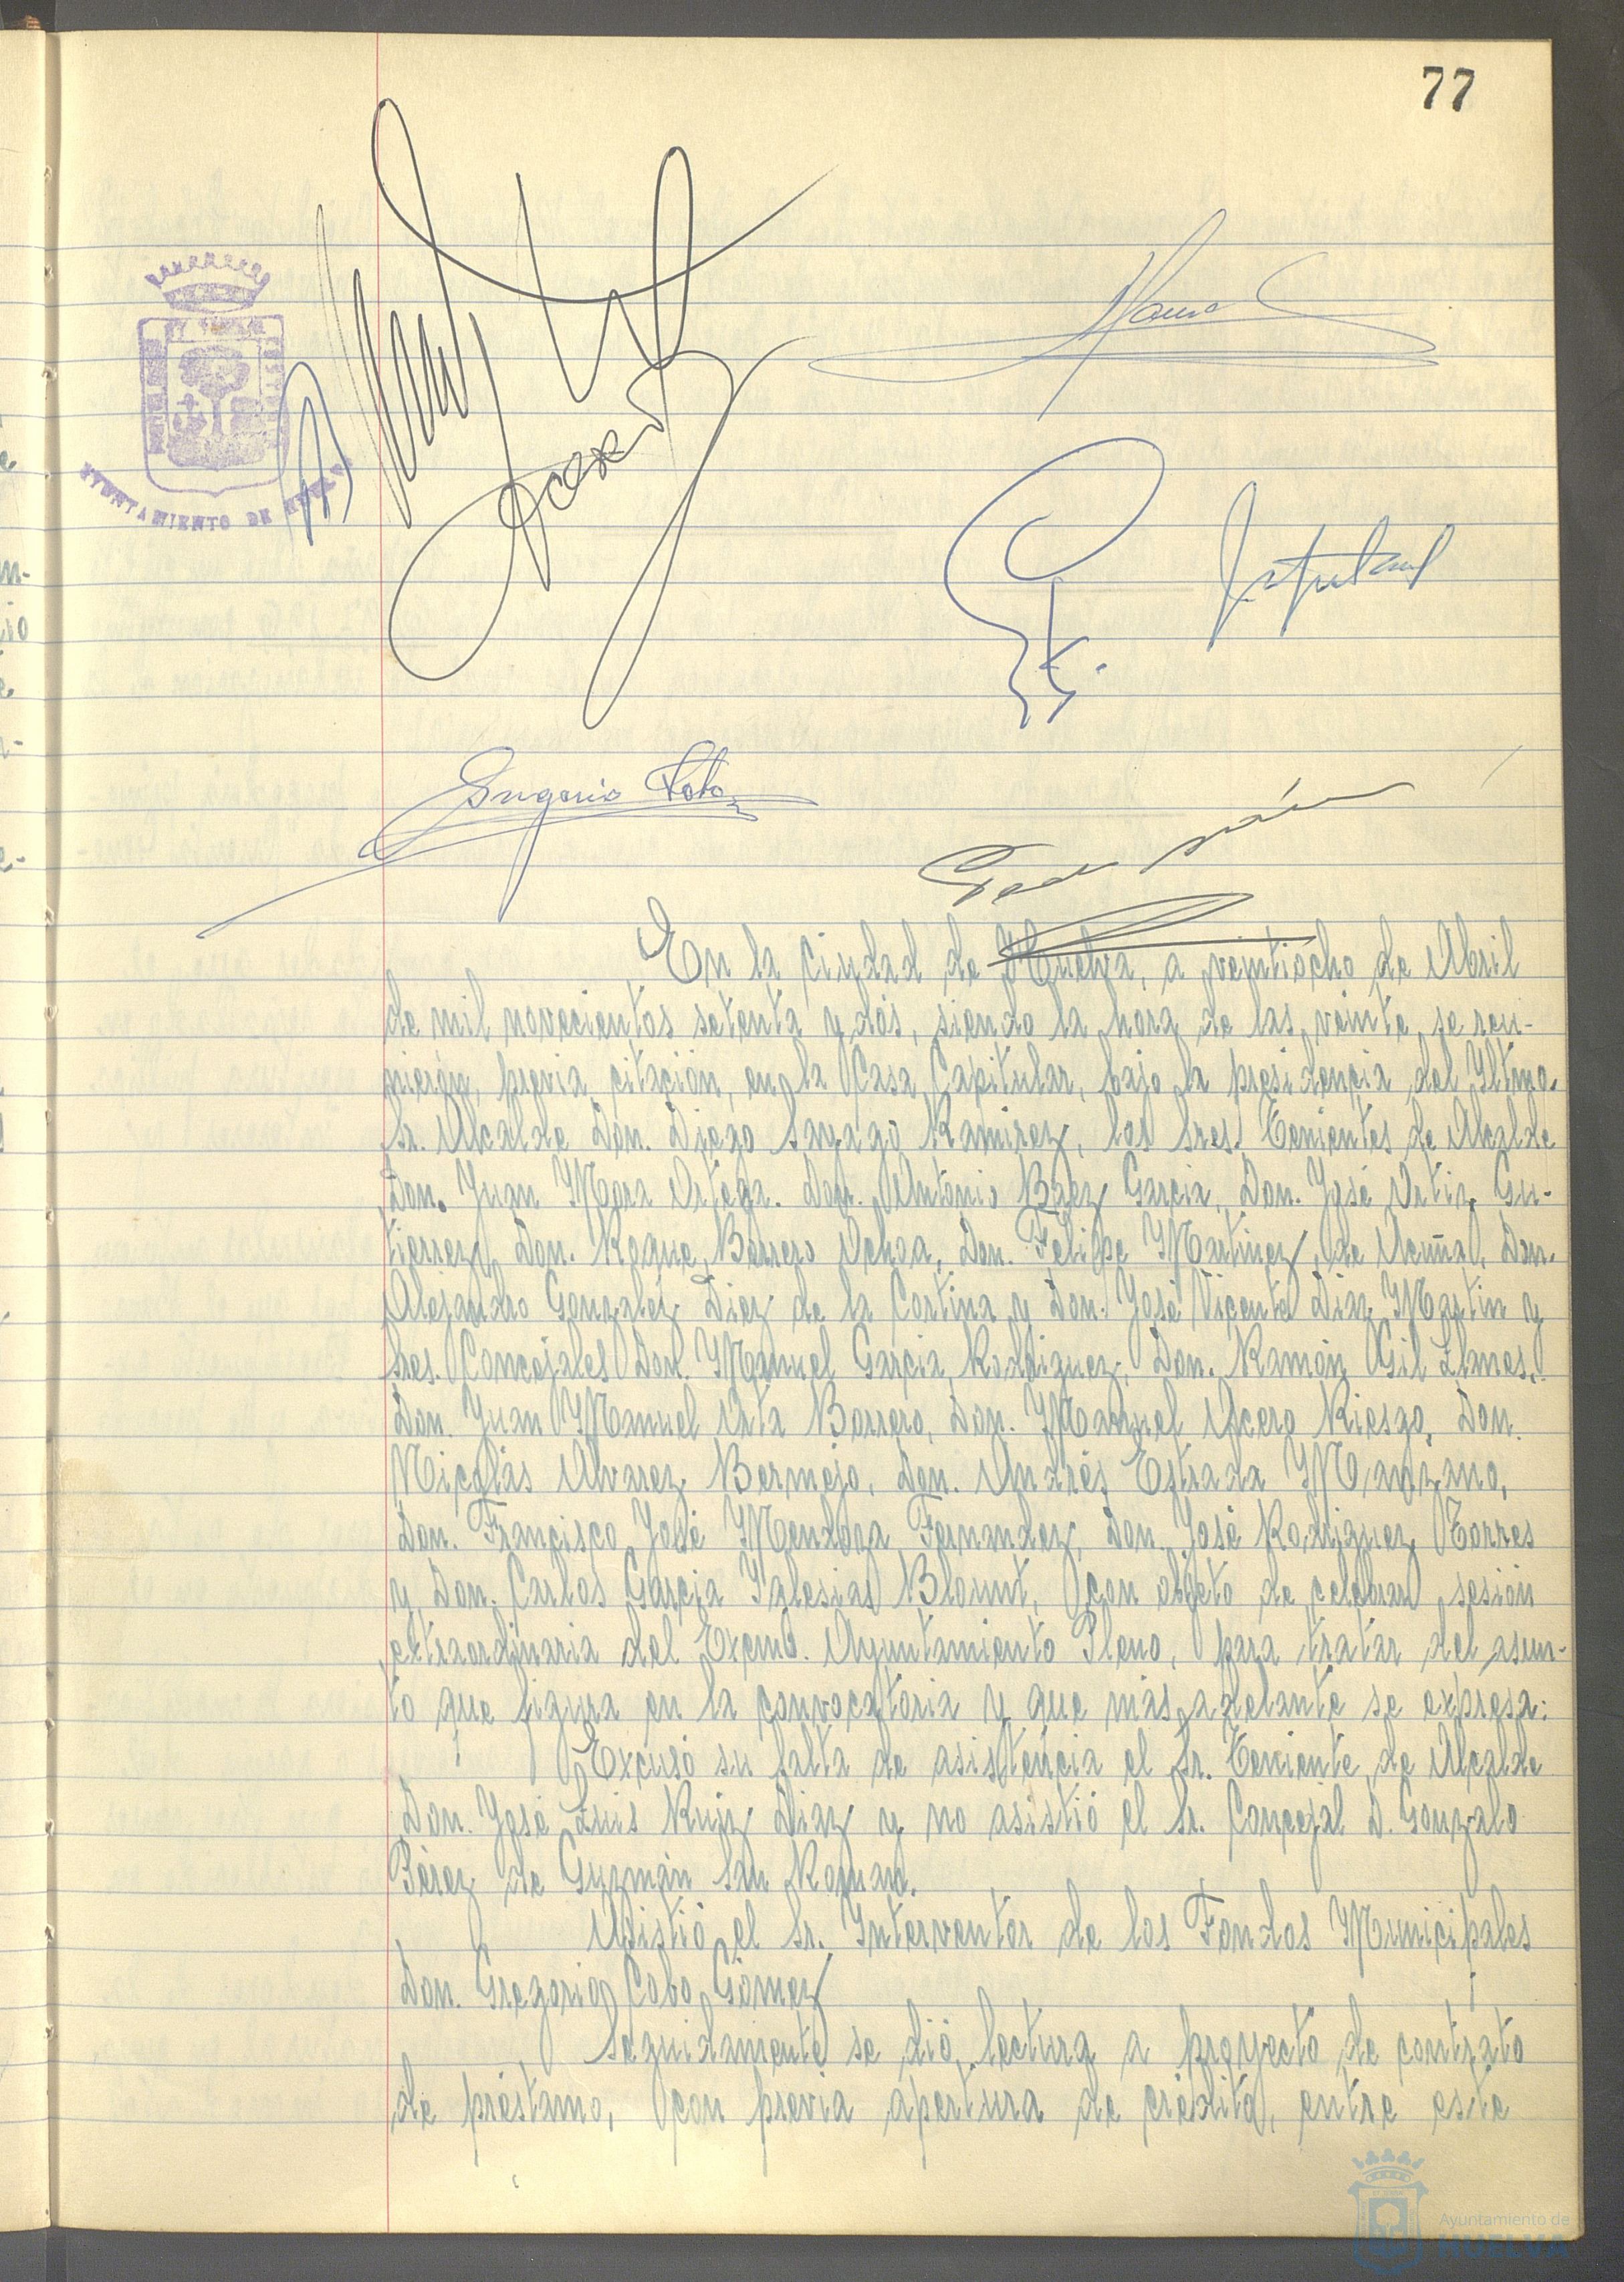 77
AYUNTAMIENTO DE HUELVA
En la ciudad de Huelva, a veintiocho de Abril
de mil novecientos setenta y dós, siendo la hora de las veinte, se reu-
nierón, previa citación, en la Casa Capitular, bajo la presidencia del Iltmo.
Sr. Alcalde Don. Diego Sayago Ramirez, los Sres. Tenientes de Alcalde
Don. Juan Mora Ortega. Don. Antonio Baez Garcia, Don. José Ortiz Gu-
tierrez, Don. Roque Barrero Ochoa, Don. Felipe Martinez de Acuña, Don.
Alejandro Gonzaléz Diez de la Cortina y Don. José Vicente Diaz Martin y
Sres. Concejales Don. Manuel Garcia Rodriguez, Don. Ramón Gil Llanes,
Don. Juan Manuel Orta Borrero, Don. Manuel Acero Riesgo, Don.
Nicolás Alvarez Bermejo, Don. Andrés Estrada Manzano,
Don. Francisco José Mendoza Fernandez, Don. José Rodriguez Torres
y Don. Carlos Garcia Yglesias Blount, con objeto de celebrar sesión
extraordinaria del Excmo. Ayuntamiento Pleno, para tratar del asun-
to que figura en la convocatoria y que más adelante se expresa:
Excusó su falta de asistencia el Sr. Teniente de Alcalde
Don. José Luis Ruiz Diaz y no asistió el Sr. Concejal D. Gonzalo
Pérez de Guzmán San Roman.
Asistió el Sr. Interventor de los Fondos Municipales
Don. Gregorio Cobo Gómez
Seguidamente se dió lectura a proyecto de contrato
de préstamo, con previa apertura de crédito, entre este
Ayuntamiento de
HUELVA